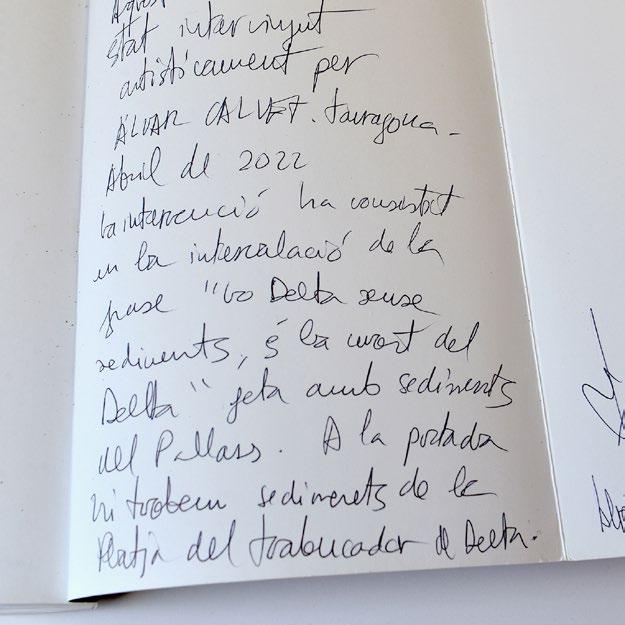 Aquest
estat intervingut
artísticament per
ÀLVAR CALVET. Tarragona -
Abril de 2022
La intervenció ha consistit
en la intercalació de la
frase "Un Delta sense
sediments, és la mort del
Delta" feta amb sediments
del Pallars. A la portada
hi trobem sediments de la
Platja del trabucador de Delta.